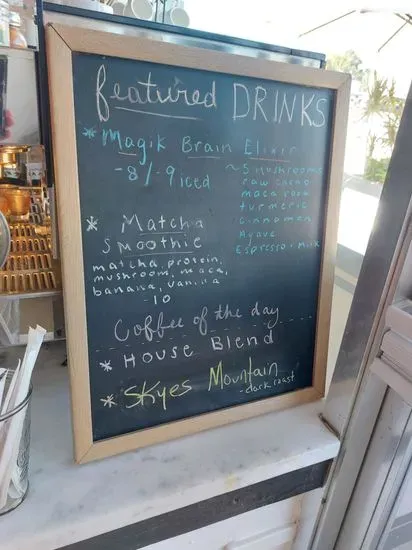 featured DRINKS
* Magik Brain Elixir
- 8/- 9 iced
~ 5 mushrooms
raw cacao
maca root
turmeric
cinnamon
Agave
Espresso + milk
* Matcha
Smoothie
matcha, protein,
mushroom, maca,
banana, vanilla
- 10
Coffee of the day
* House Blend
* Skyes Mountain
- dark roast